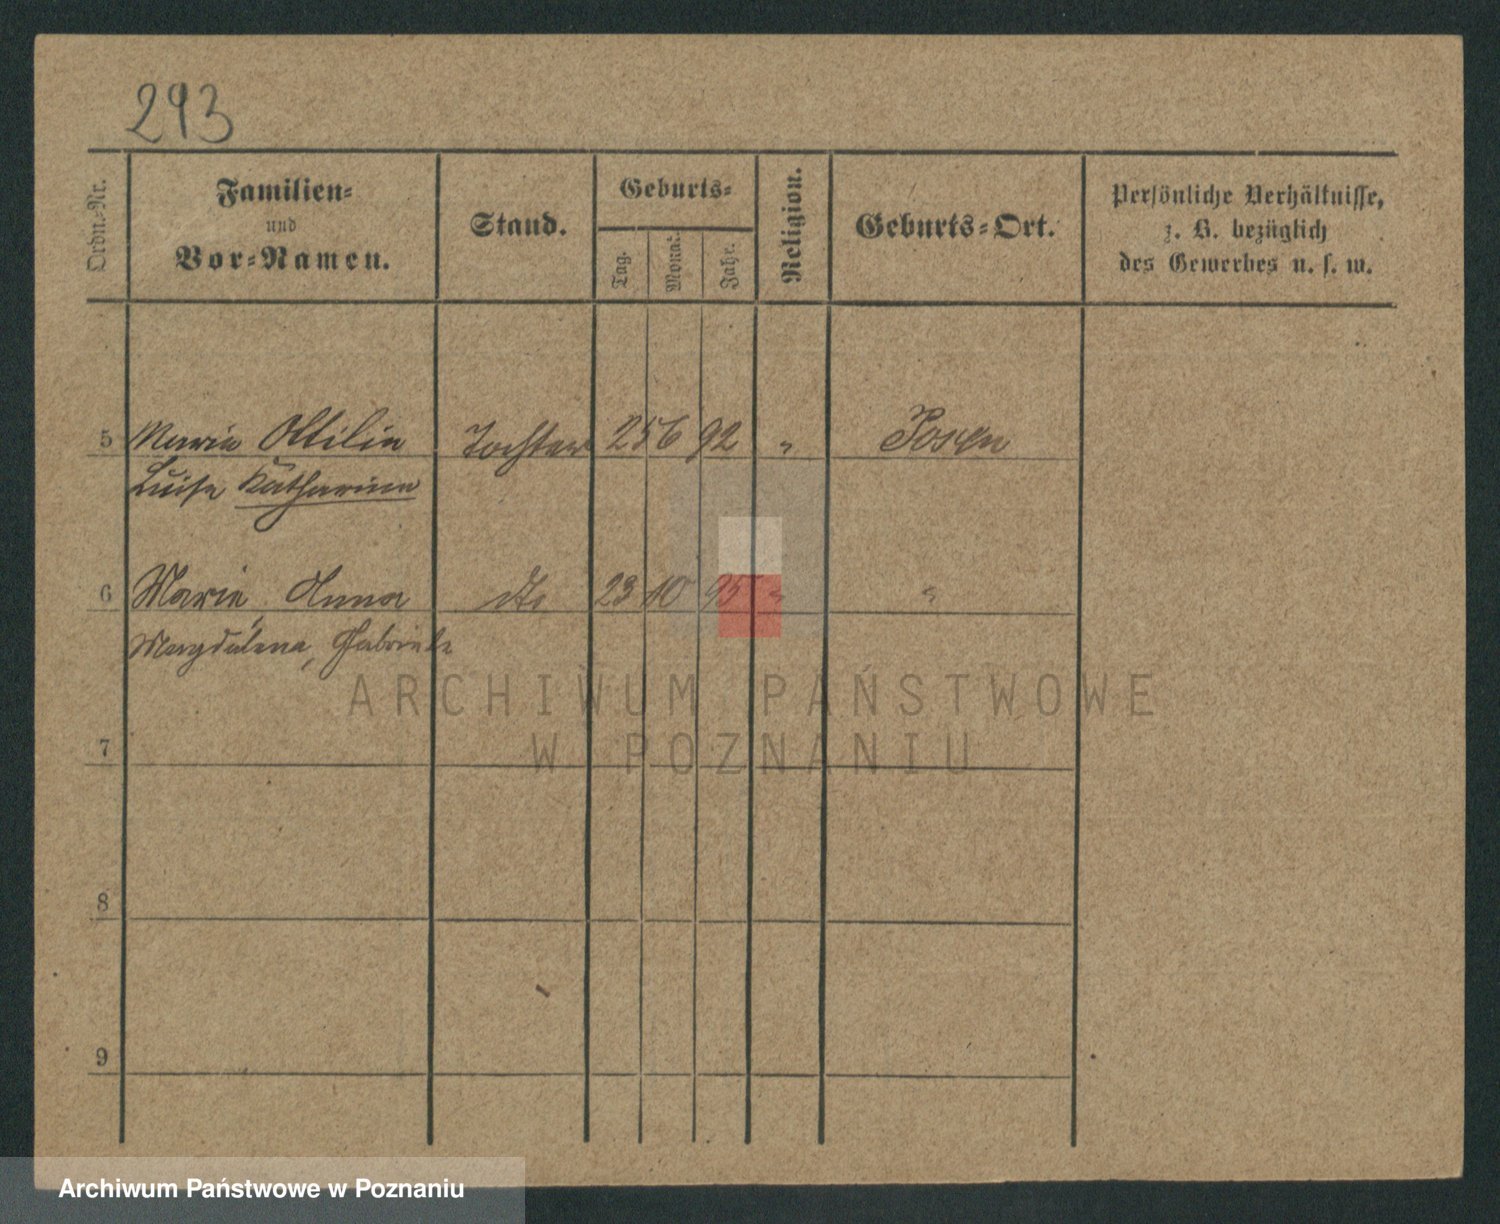 293
Ordn.-Nr.
Familien-
und
Vor-Namen.
Stand.
Geburts-
Tag.
Monat.
Jahr.
Religion.
Geburts-Ort.
Persönliche Verhältnisse,
z. B. bezüglich
des Gewerbes u. s. w.
5 Marie Ottilie Tochter 25 6 92 " Posen
Luise Katharina
6 Marie Anna dto 23 10 95 " "
Magdalena, Gabriele
ARCHIWUM PAŃSTWOWE
W POZNANIU
7
8
9
Archiwum Państwowe w Poznaniu